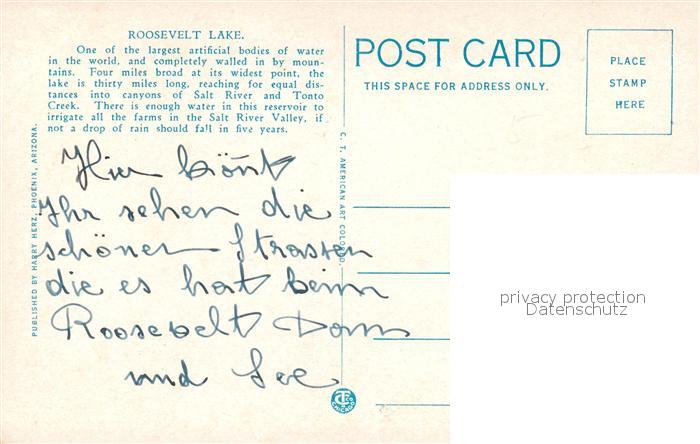 ROOSEVELT LAKE.
One of the largest artificial bodies of water
in the world, and completely walled in by moun-
tains. Four miles broad at its widest point, the
lake is thirty miles long, reaching for equal dis-
tances into canyons of Salt River and Tonto
Creek. There is enough water in this reservoir to
irrigate all the farms in the Salt River Valley, if
not a drop of rain should fall in five years.
POST CARD
THIS SPACE FOR ADDRESS ONLY.
PLACE
STAMP
HERE
PUBLISHED BY HARRY HERZ, PHOENIX, ARIZONA.
C. T. AMERICAN ART COLORED
Hier könnt
Ihr sehen die
schönen Strassen
die es hat beim
Roosevelt Dam
und See
privacy protection
Datenschutz
CHICAGO